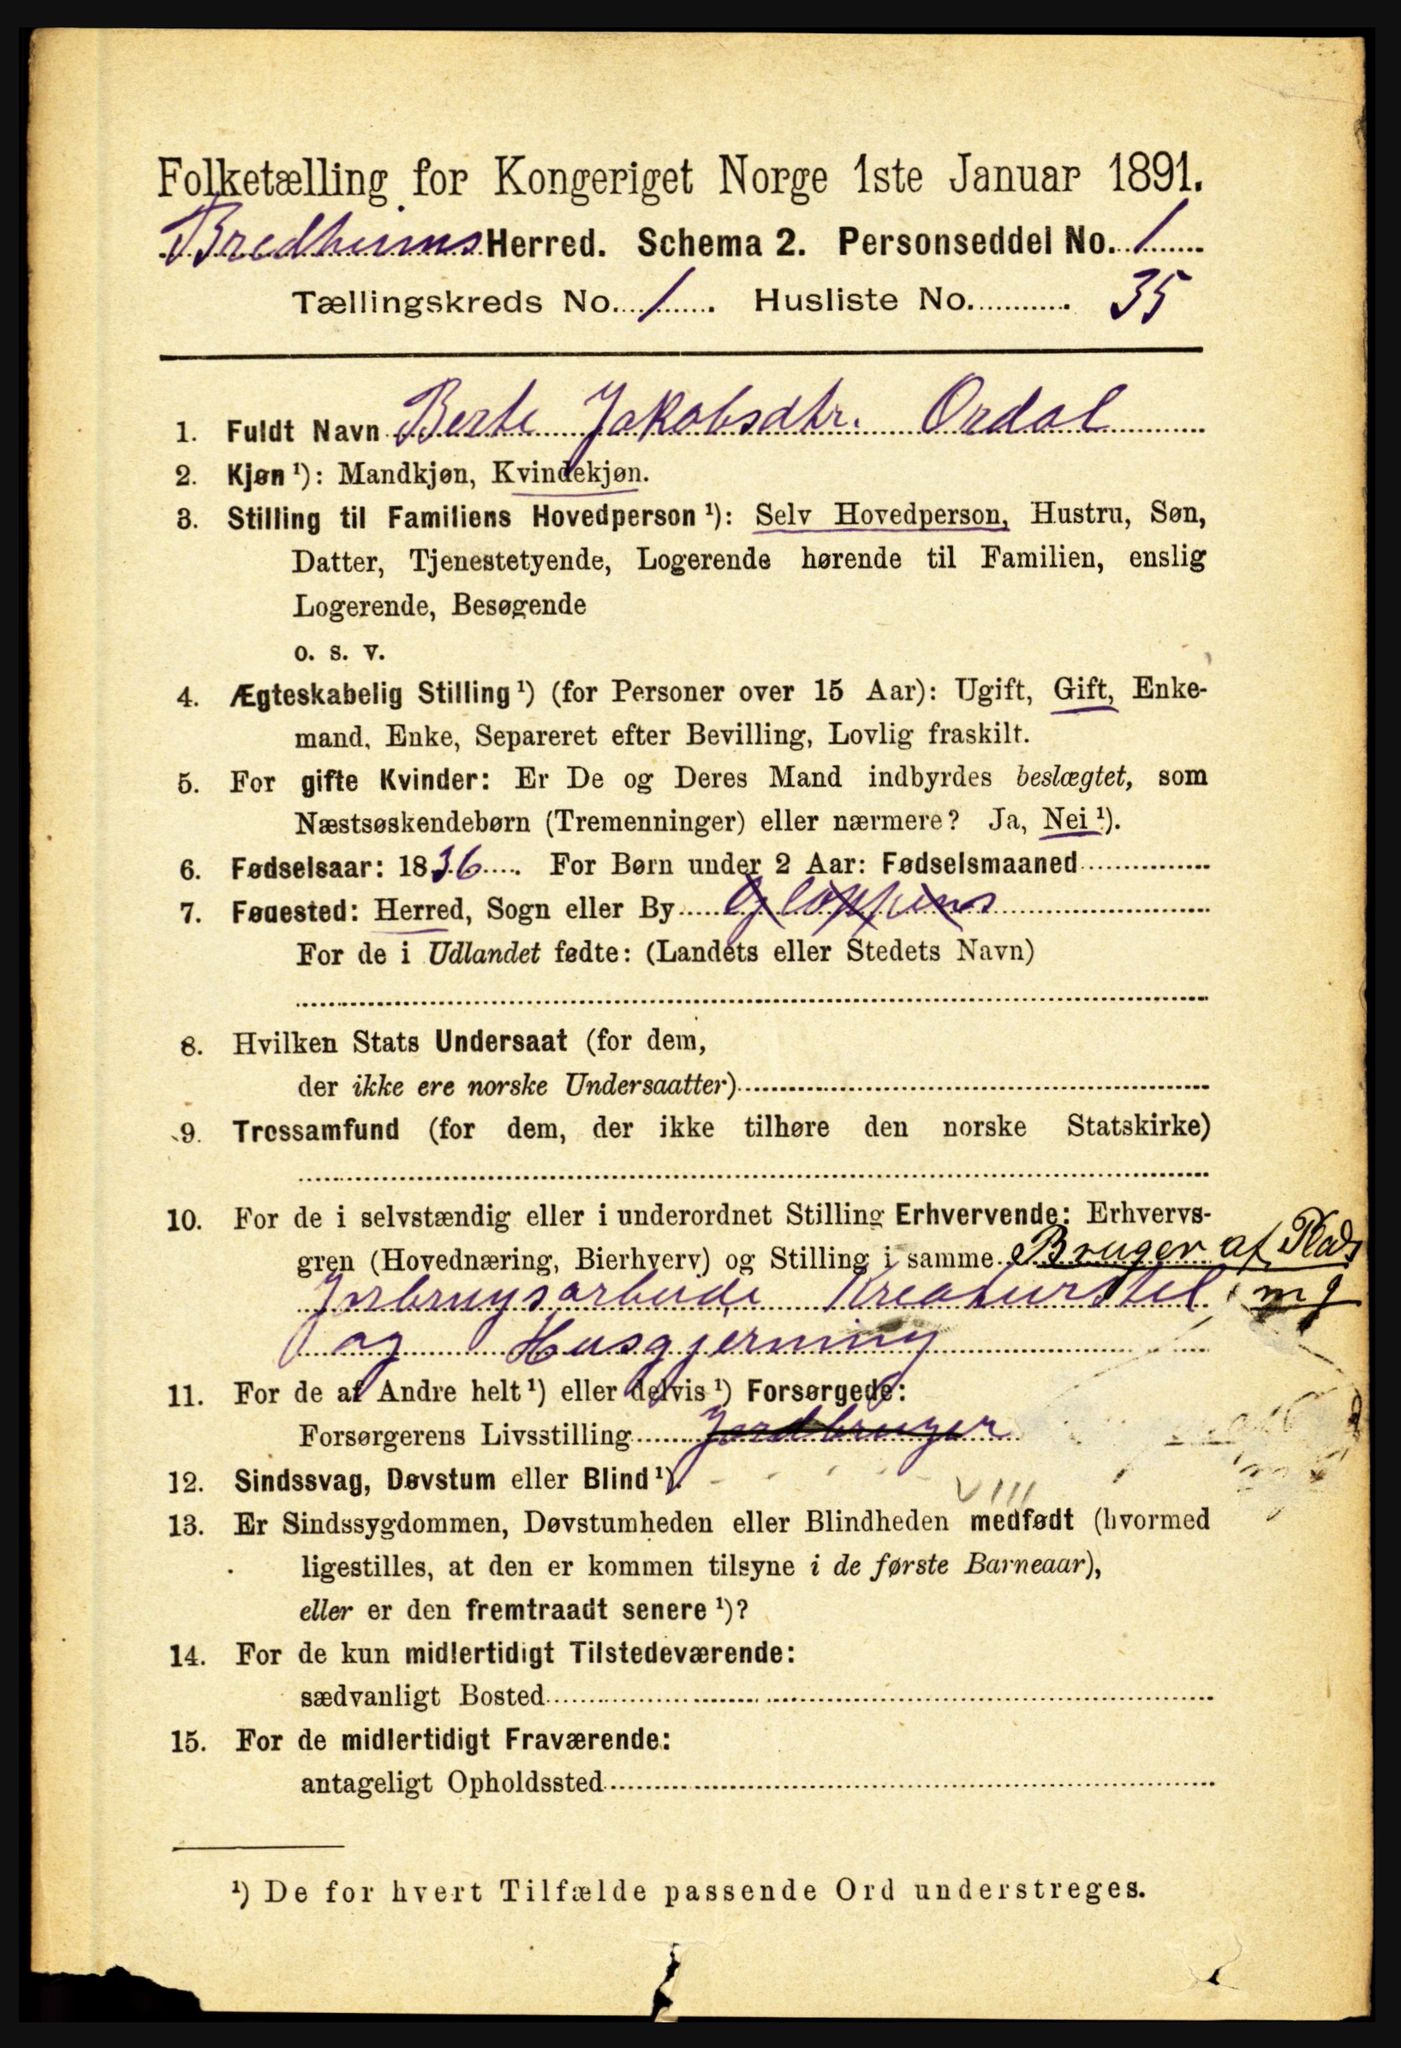 Folketælling for Kongeriget Norge 1ste Januar 1891.
Bredheims Herred. Schema 2. Personseddel No. 1
Tællingskreds No. 1. Husliste No. 35
1. Fuldt Navn Berte Jakobsdtr. Ordal
2. Kjøn ¹): Mandkjøn, Kvindekjøn.
3. Stilling til Familiens Hovedperson ¹): Selv Hovedperson, Hustru, Søn,
Datter, Tjenestetyende, Logerende hørende til Familien, enslig
Logerende, Besøgende
o. s. v.
4. Ægteskabelig Stilling ¹) (for Personer over 15 Aar): Ugift, Gift, Enke-
mand, Enke, Separeret efter Bevilling, Lovlig fraskilt.
5. For gifte Kvinder: Er De og Deres Mand indbyrdes beslægtet, som
Næstsøskendebørn (Tremenninger) eller nærmere? Ja, Nei ¹).
6. Fødselsaar: 1836. For Børn under 2 Aar: Fødselsmaaned
7. Føuested: Herred, Sogn eller By Gloppens
For de i Udlandet fødte: (Landets eller Stedets Navn)
8. Hvilken Stats Undersaat (for dem,
der ikke ere norske Undersaatter)
9. Trossamfund (for dem, der ikke tilhøre den norske Statskirke)
10. For de i selvstændig eller i underordnet Stilling Erhvervende: Erhvervs-
gren (Hovednæring, Bierhverv) og Stilling i samme Bruger af Plads
Jorbrugsarbeide Kreaturstel m J
og Husgjerning
11. For de af Andre helt ¹) eller delvis ¹) Forsørgede:
Forsørgerens Livsstilling Jordbruger
12. Sindssvag, Døvstum eller Blind ¹).
VIII
13. Er Sindssygdommen, Døvstumheden eller Blindheden medfødt (hvormed
ligestilles, at den er kommen tilsyne i de første Barneaar),
eller er den fremtraadt senere ¹)?
14. For de kun midlertidigt Tilstedeværende:
sædvanligt Bosted
15. For de midlertidigt Fraværende:
antageligt Opholdssted
¹) De for hvert Tilfælde passende Ord understreges.